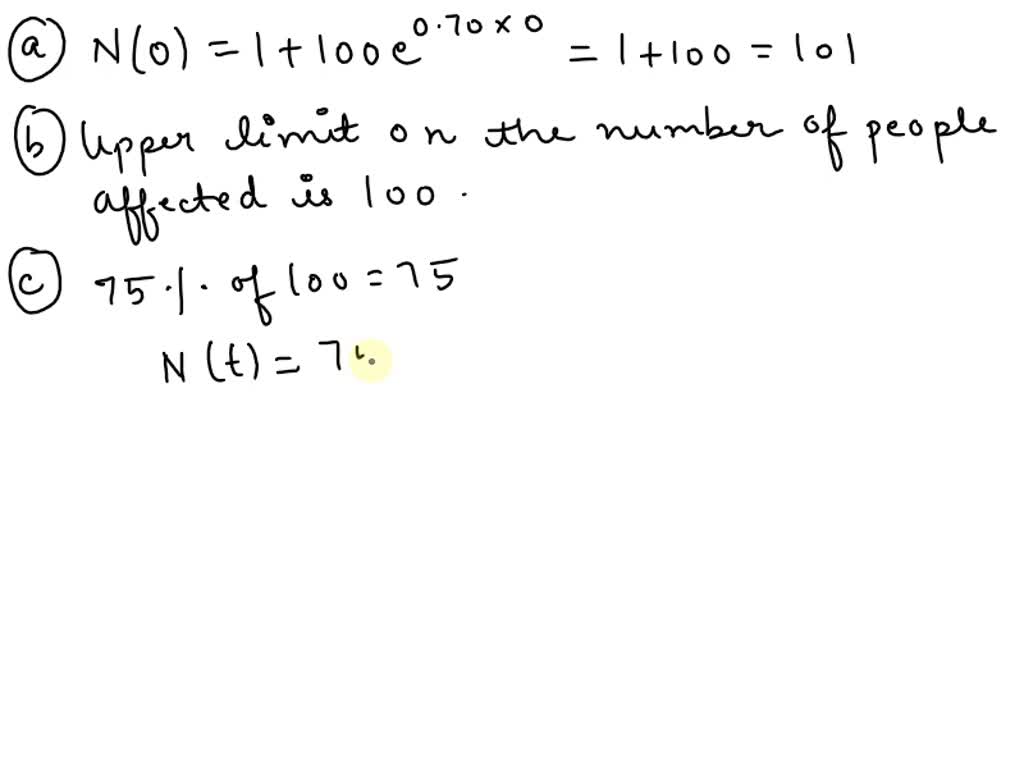 (a) N(0) = 1 + 100e^0.70×0 = 1+100 = 101
(b) Upper limit on the number of people
affected is 100.
(c) 75 ·/· of 100 = 75
N(t) = 7